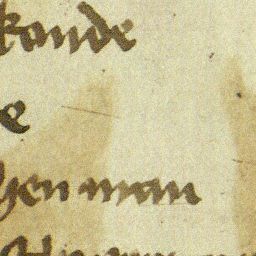 kande
e
hen man